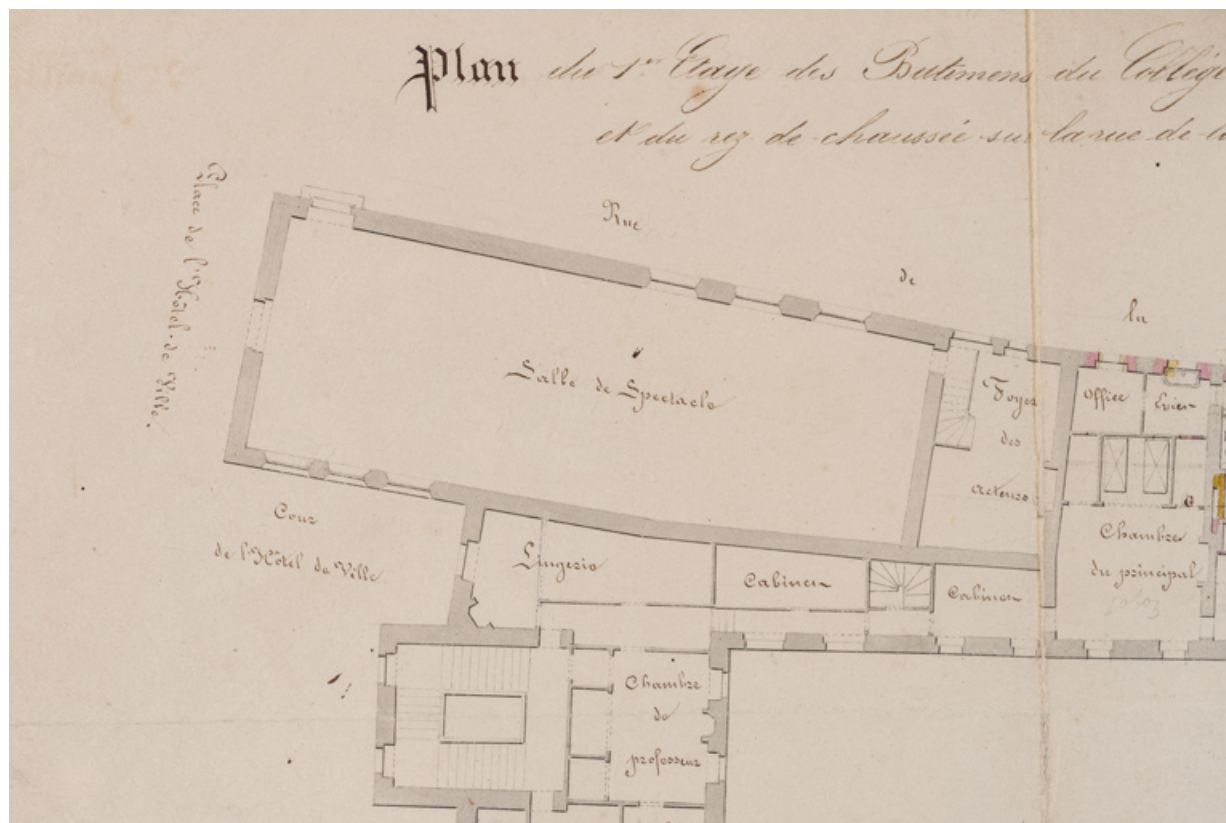 Plan du 1er Etage des Batimens du Collége
et du rez-de-chaussée sur la rue de la
Place de l'Hôtel-de-Ville.
Rue
de
la
Salle de Spectacle
Foyer
des
acteurs
Office
Evier
G
Chambre
du principal
Cour
de l'Hôtel de Ville
Lingerie
Cabinet
Cabinet
Chambre
de
professeur